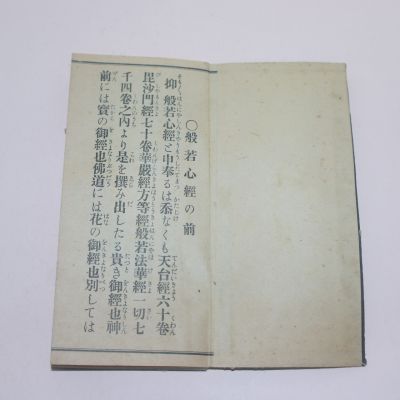 〇般若心經の前
抑般若心經と申奉るは忝なくも天台經六十卷
毘沙門經七十卷華嚴經方等經般若法華經一切七
千四卷之內より是を撰み出したる貴き御經也神
前には寶の御經也佛道には花の御經也別しては